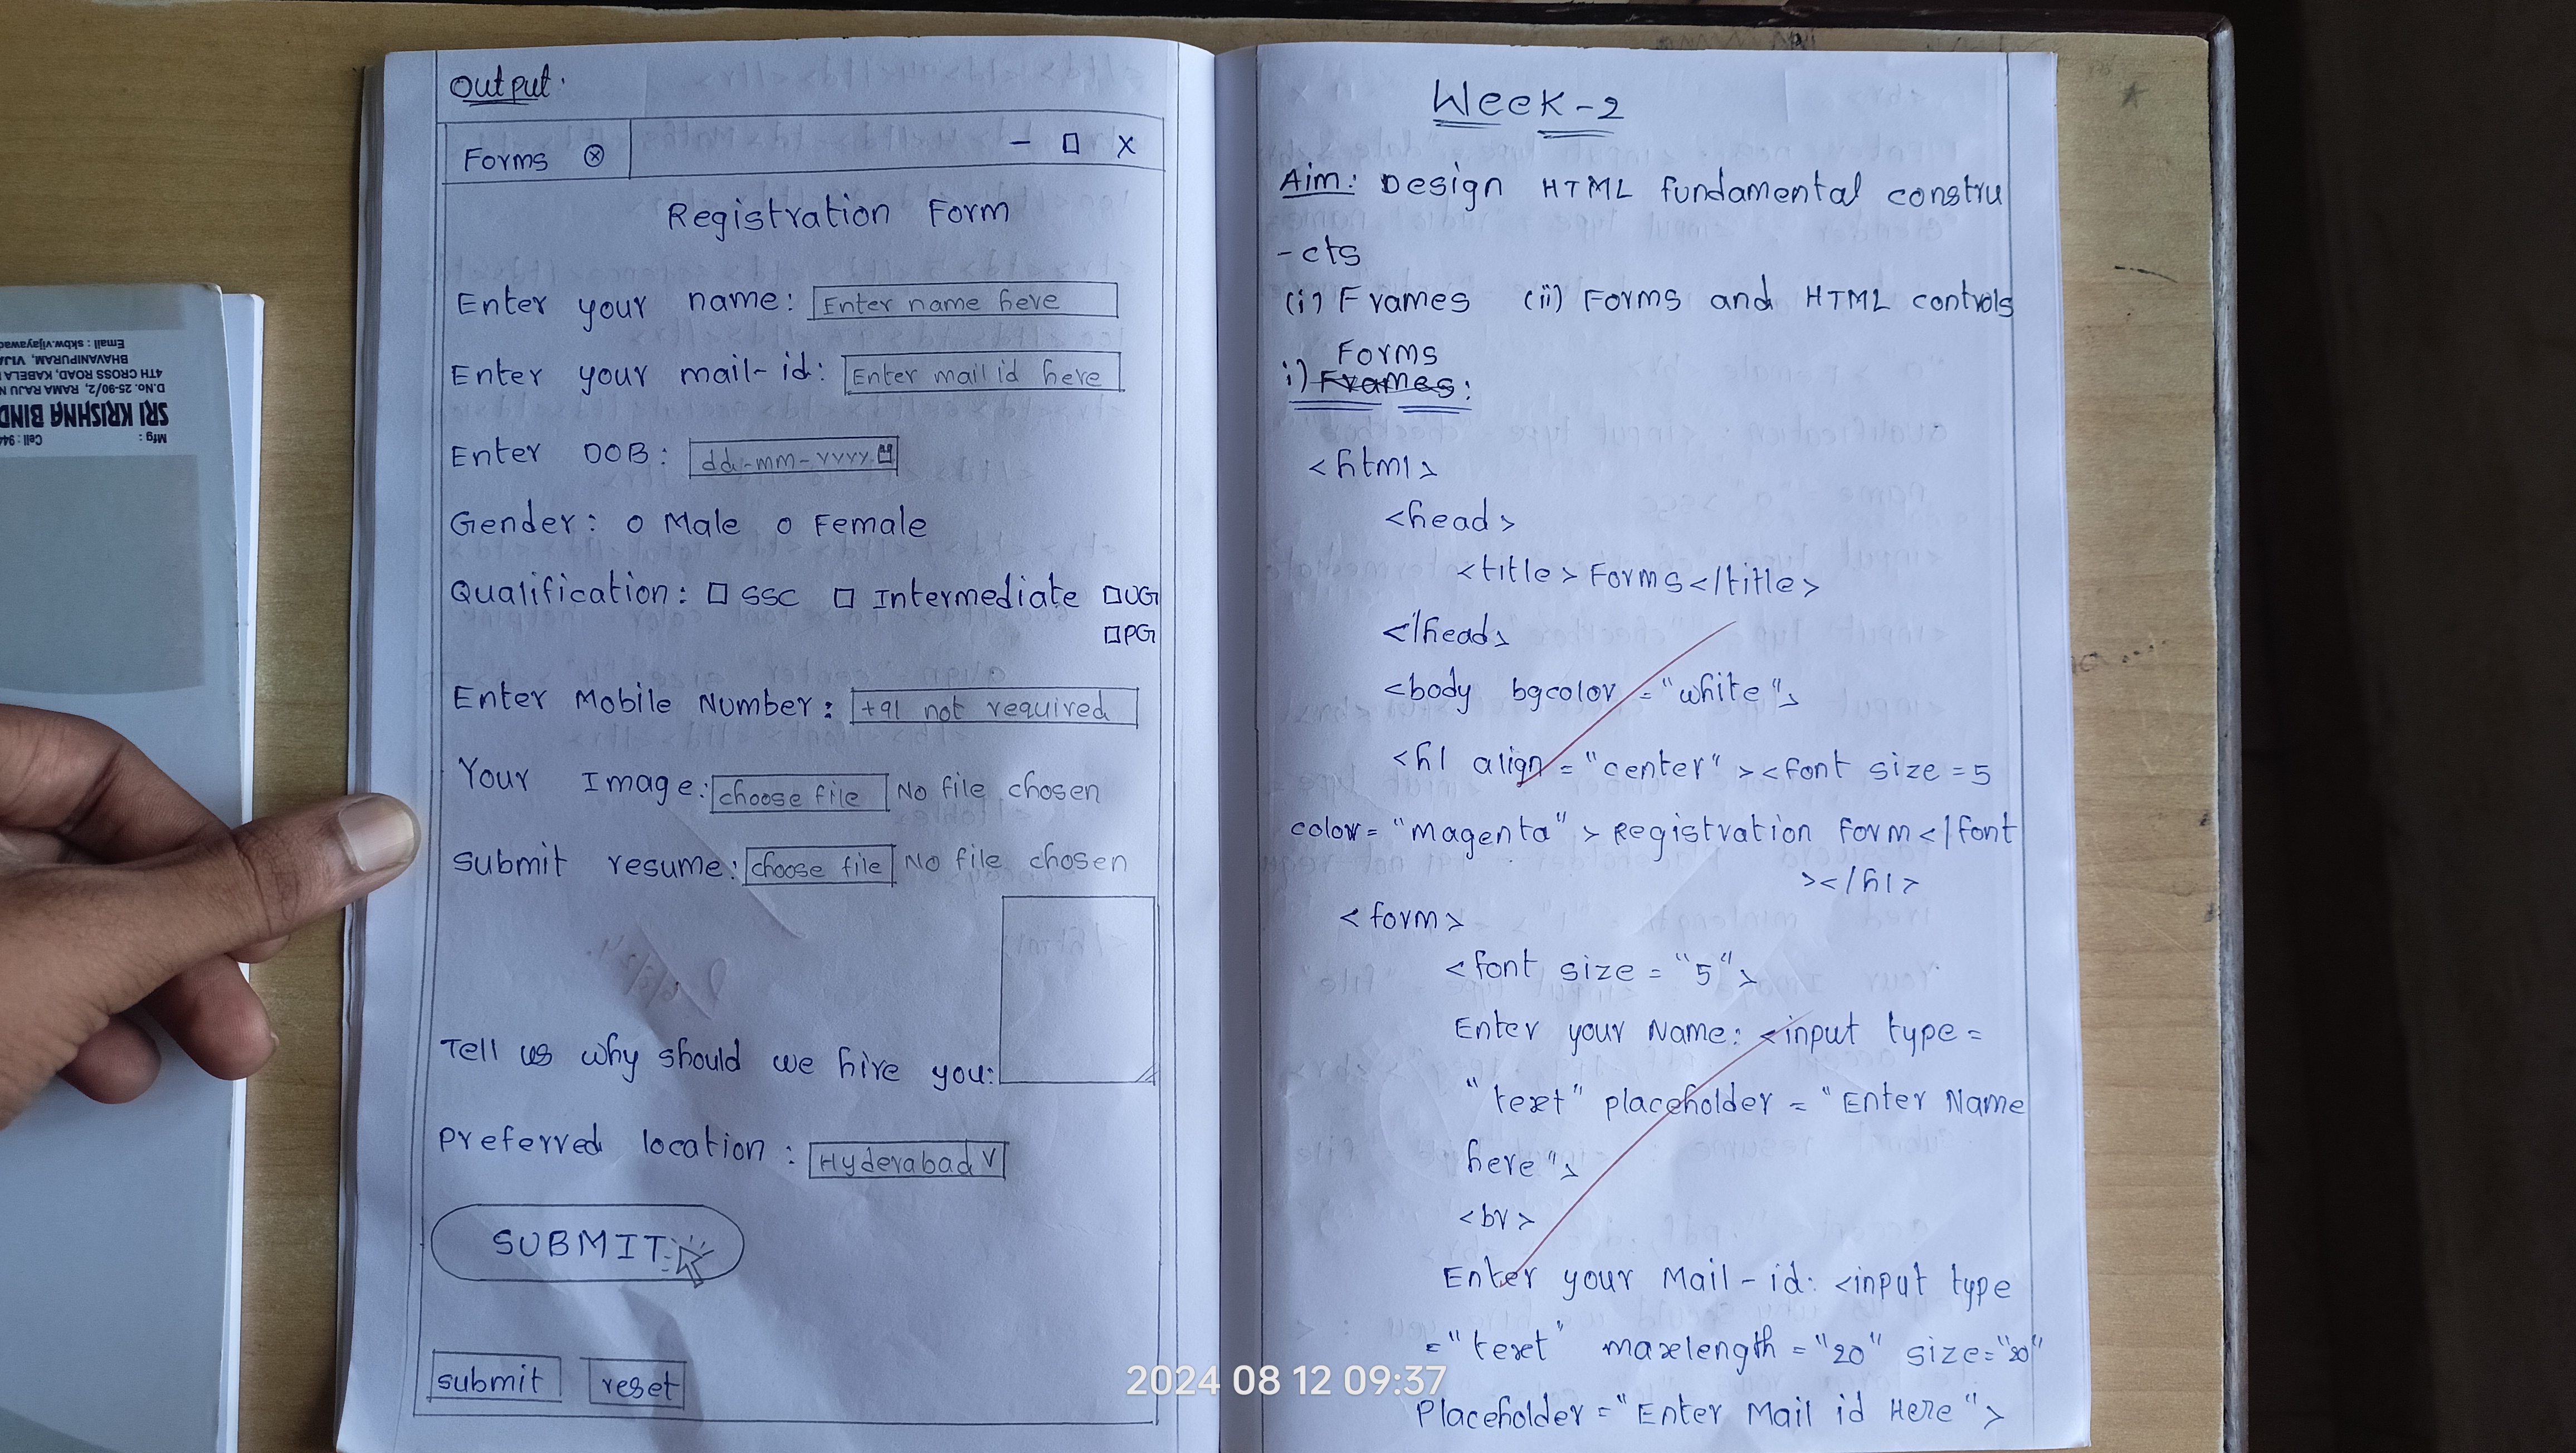 Output.
Forms ⊗ - □ X
Registration Form
Enter your name: Enter name here
Enter your mail-id: Enter mail id here
Enter DOB: dd-mm-yyyy
Gender: o Male o Female
Qualification: □ SSC □ Intermediate □UG
□PG
Enter Mobile Number: +91 not required
Your Image: choose file No file chosen
Submit resume: choose file No file chosen
Tell us why should we hire you:
Preferred location: Hyderabad V
SUBMIT
submit reset
Week-2
Aim: Design HTML fundamental constru
-cts
(i) Frames (ii) Forms and HTML controls
Forms
i) Frames:
<html>
<head>
<title> Forms </title>
</head>
<body bgcolor = "white">
<h1 align = "center" ><font size = 5
color = "magenta" > Registration Form </font
></h1>
<form>
<font size = "5">
Enter your Name: <input type =
"text" placeholder = "Enter Name
here">
<br>
Enter your Mail-id: <input type
="text" maxlength = "20" size="20"
Placeholder = "Enter Mail id Here">
Email : skbw.vijayawa
BHAVANIPURAM, VIJA
4TH CROSS ROAD, KABELA
D.No. 25-90/2, RAMA RAJU N
SRI KRISHNA BIND
Mfg : Cell : 944
2024 08 12 09:37